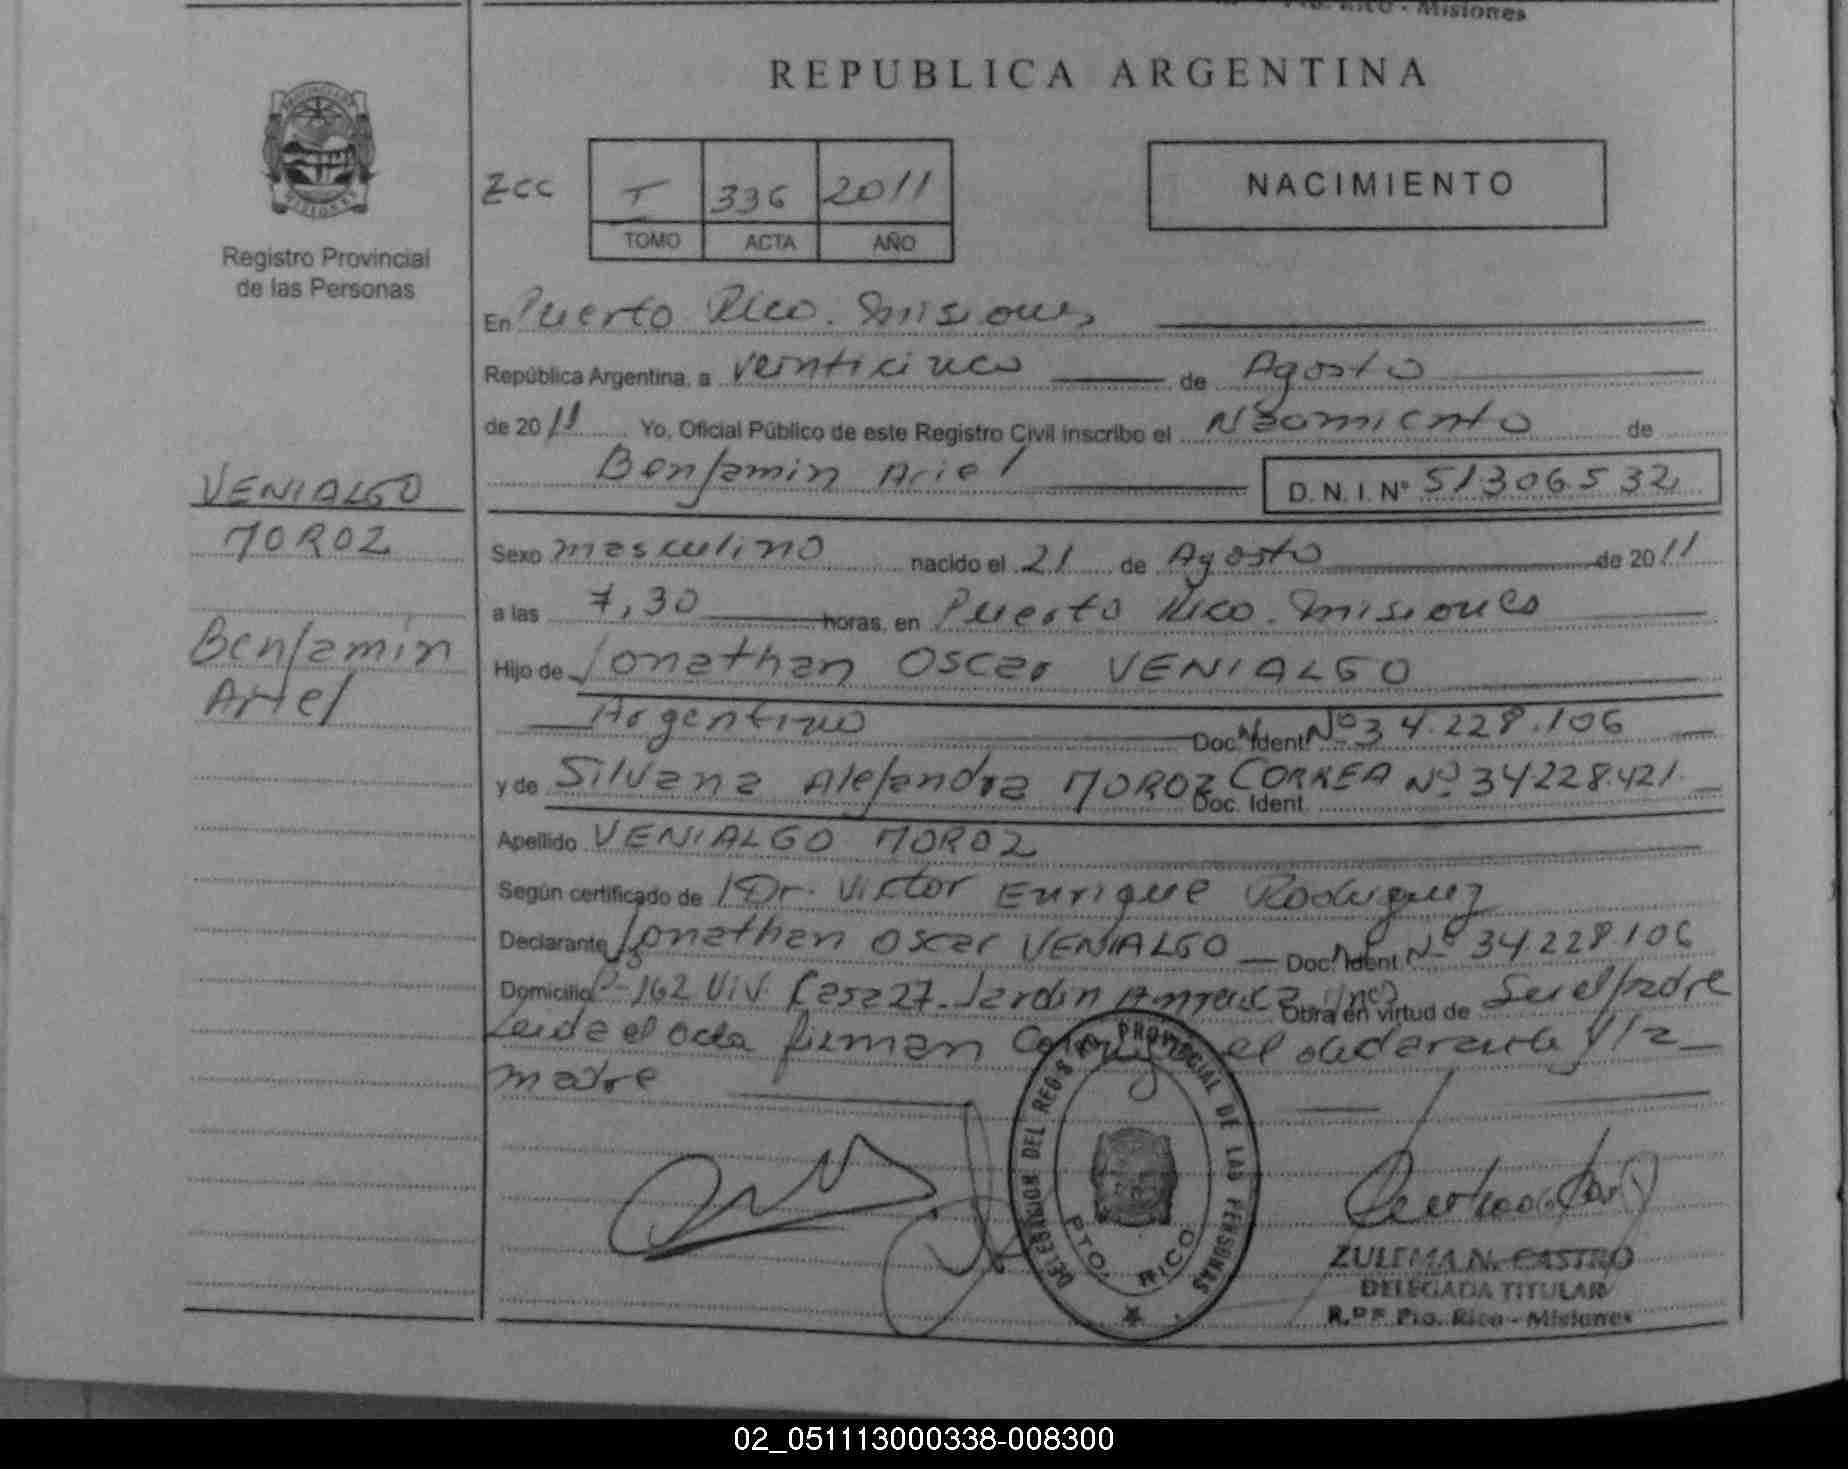 Pto. Rico - Misiones
REPUBLICA ARGENTINA
Registro Provincial
de las Personas
zcc
T 336 2011
TOMO ACTA AÑO
NACIMIENTO
En Puerto Rico. Misiones
República Argentina, a veinticinco de Agosto
de 2011 Yo, Oficial Público de este Registro Civil inscribo el Nacimiento de
Benjamin Ariel D. N. I. Nº 51306532
VENIALGO
MOROZ
Benjamin
Ariel
Sexo masculino nacido el 21 de Agosto de 2011
a las 7,30 horas, en Puerto Rico. Misiones
Hijo de Jonathan Oscar VENIALGO
Argentino Doc. Ident. Nº 34.228.106
y de Silvana Alejandra MOROZ CORREA Nº 34228.421
Doc. Ident.
Apellido VENIALGO MOROZ
Según certificado de Dr. Victor Enrique Rodriguez
Declarante Jonathan Oscar VENIALGO Doc. Ident. Nº 34.228.106
Domicilio 162 Viv. Casa 27. Jardin Obra en virtud de Ser el padre
Leida el acta firman el declarante y la
madre
DELEGACION DEL REG PROVINCIAL DE LAS PERSONAS
PTO. RICO
ZULEMA N. CASTRO
DELEGADA TITULAR
R.P.P. Pto. Rico - Misiones
02_051113000338-008300